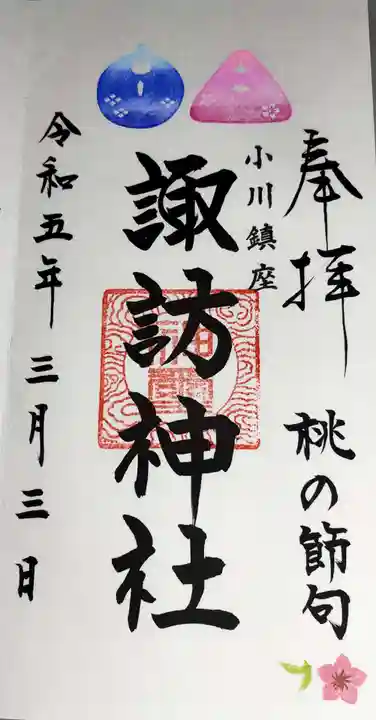 奉拝 桃の節句
小川鎮座
諏訪神社
令和五年 三月三日